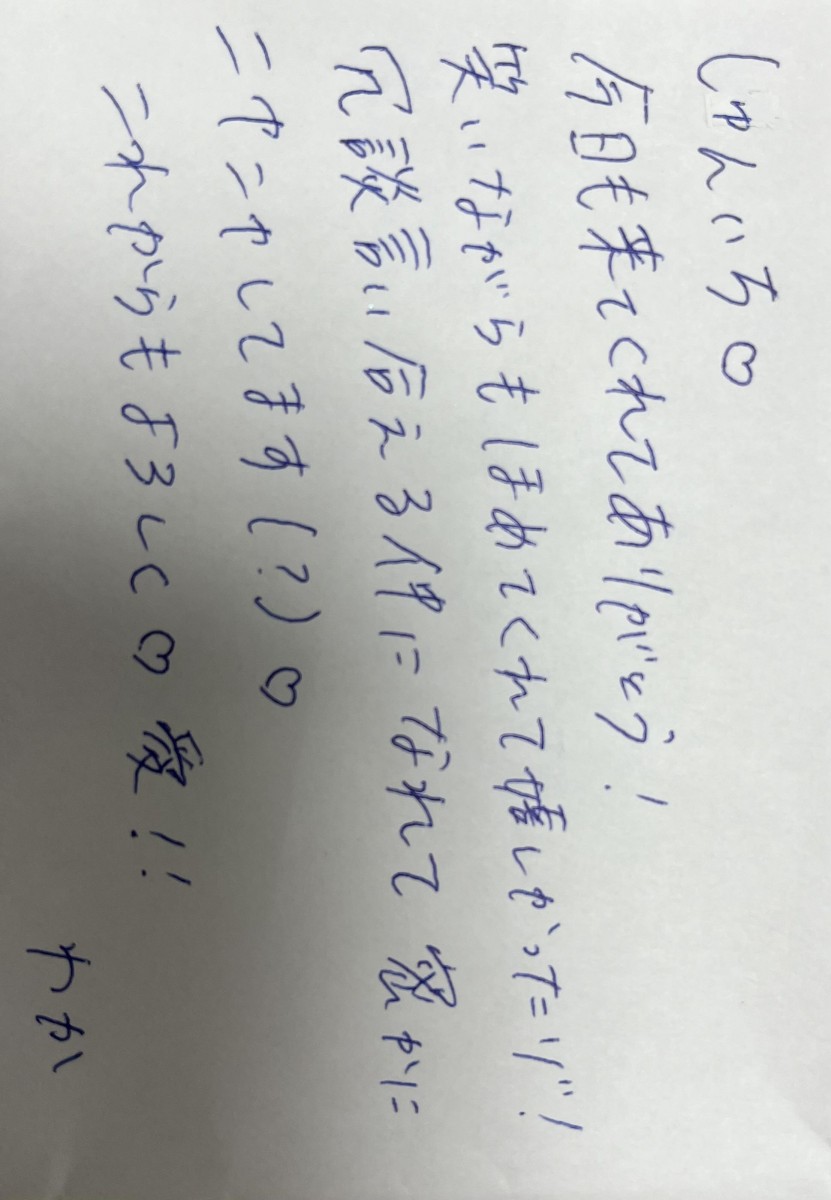 じゅんいち♡
今日も来てくれてありがとう!
笑いながらもほめてくれて嬉しかったョ!
冗談言い合える仲になれて密かに
ニヤニヤしてます(?)♡
これからもよろしく♡愛!!